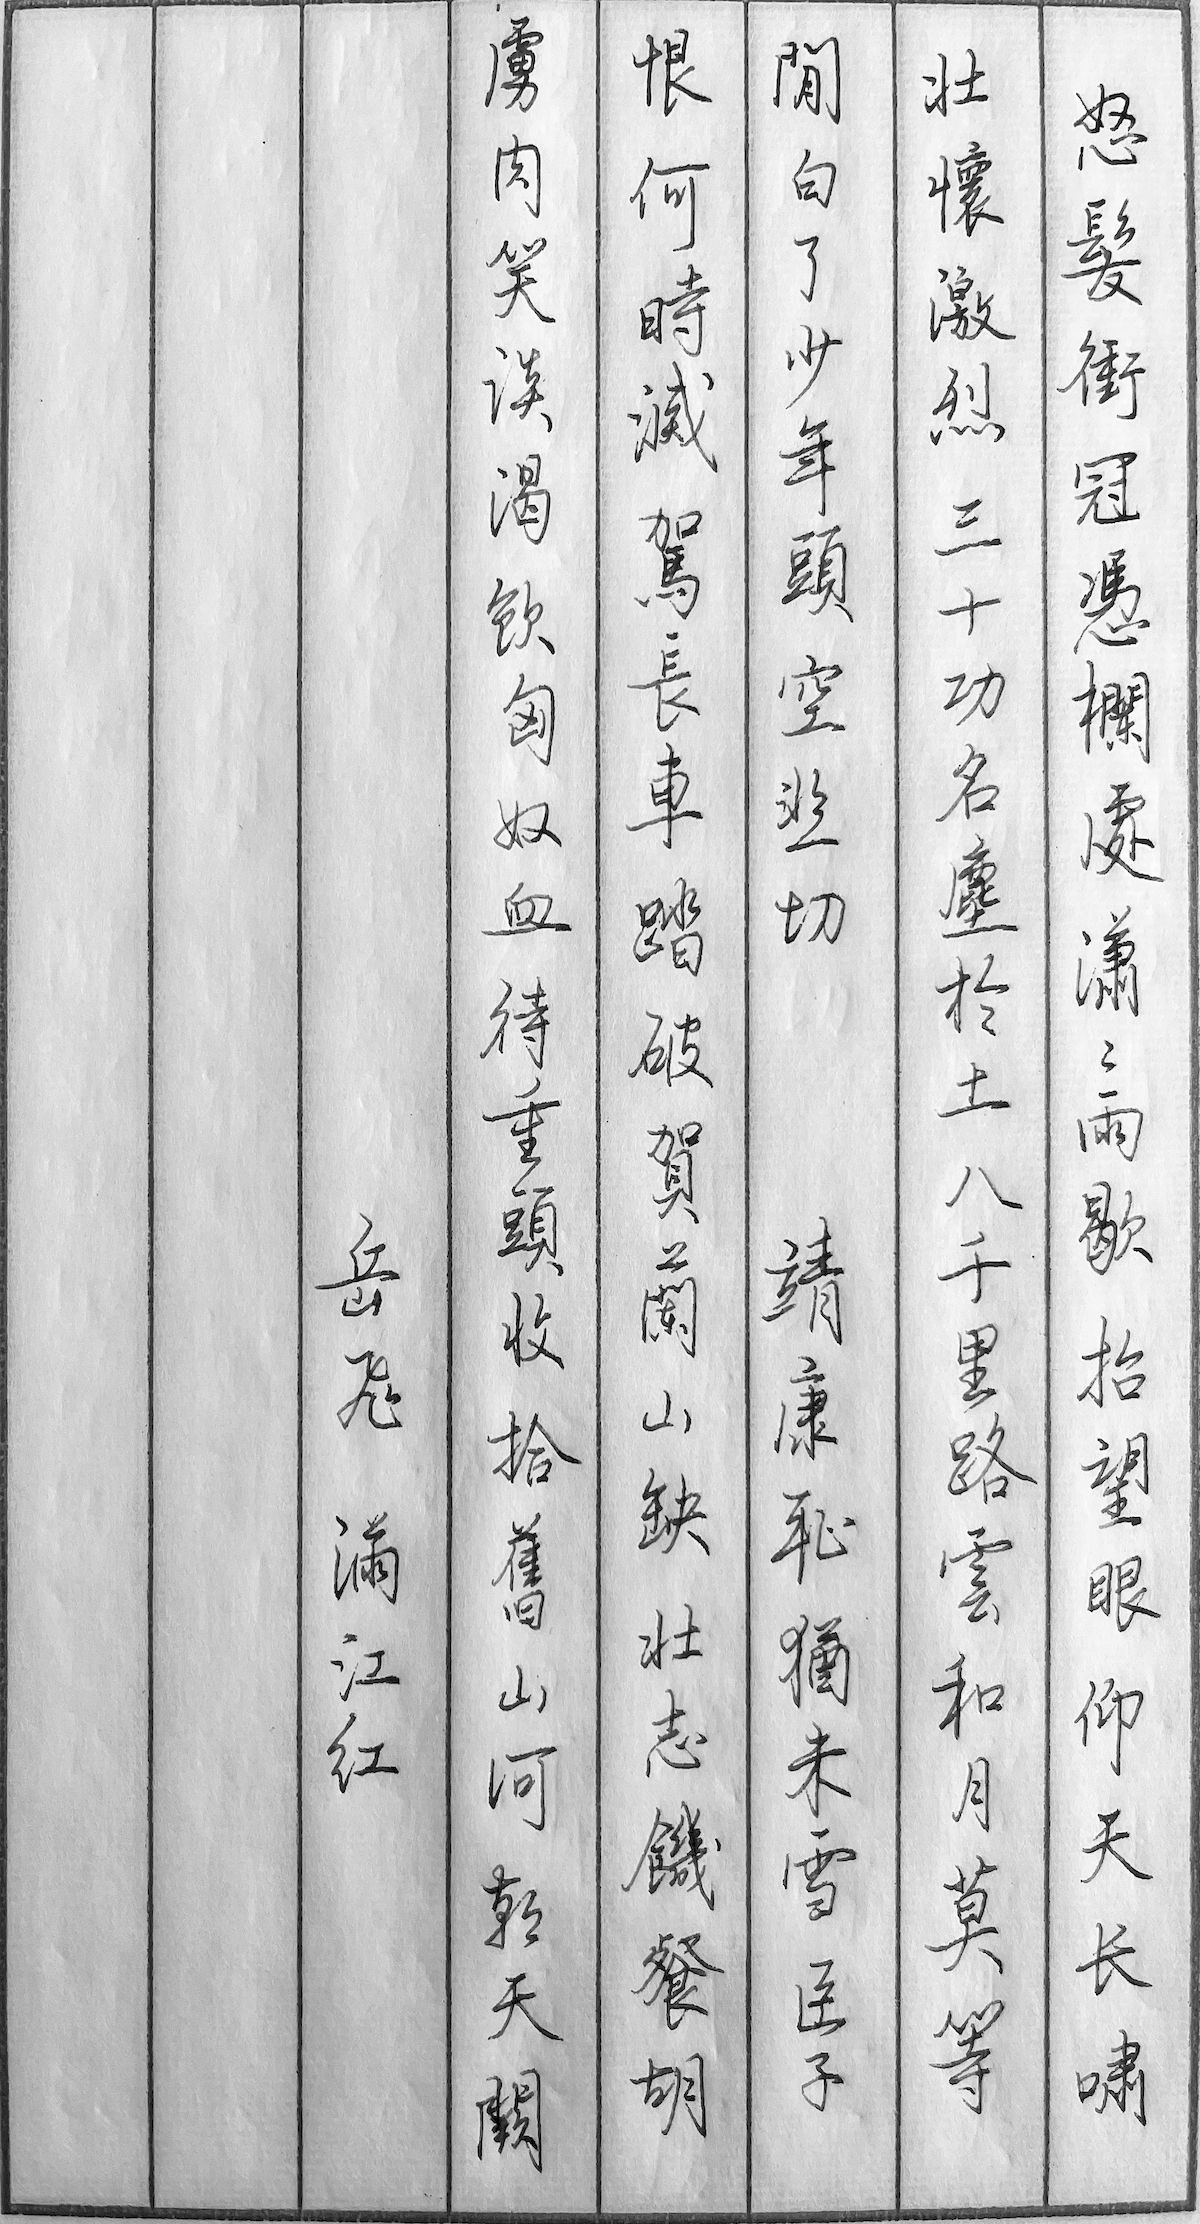 怒髮衝冠憑欄處瀟〻雨歇抬望眼仰天长嘯
壯懷激烈三十功名塵於土八千里路雲和月莫等
閒白了少年頭空悲切 靖康恥猶未雪臣子
恨何時滅駕長車踏破賀蘭山缺壯志饑餐胡
虜肉笑談渴飲匈奴血待重頭收拾舊山河朝天闕
岳飛 滿江红